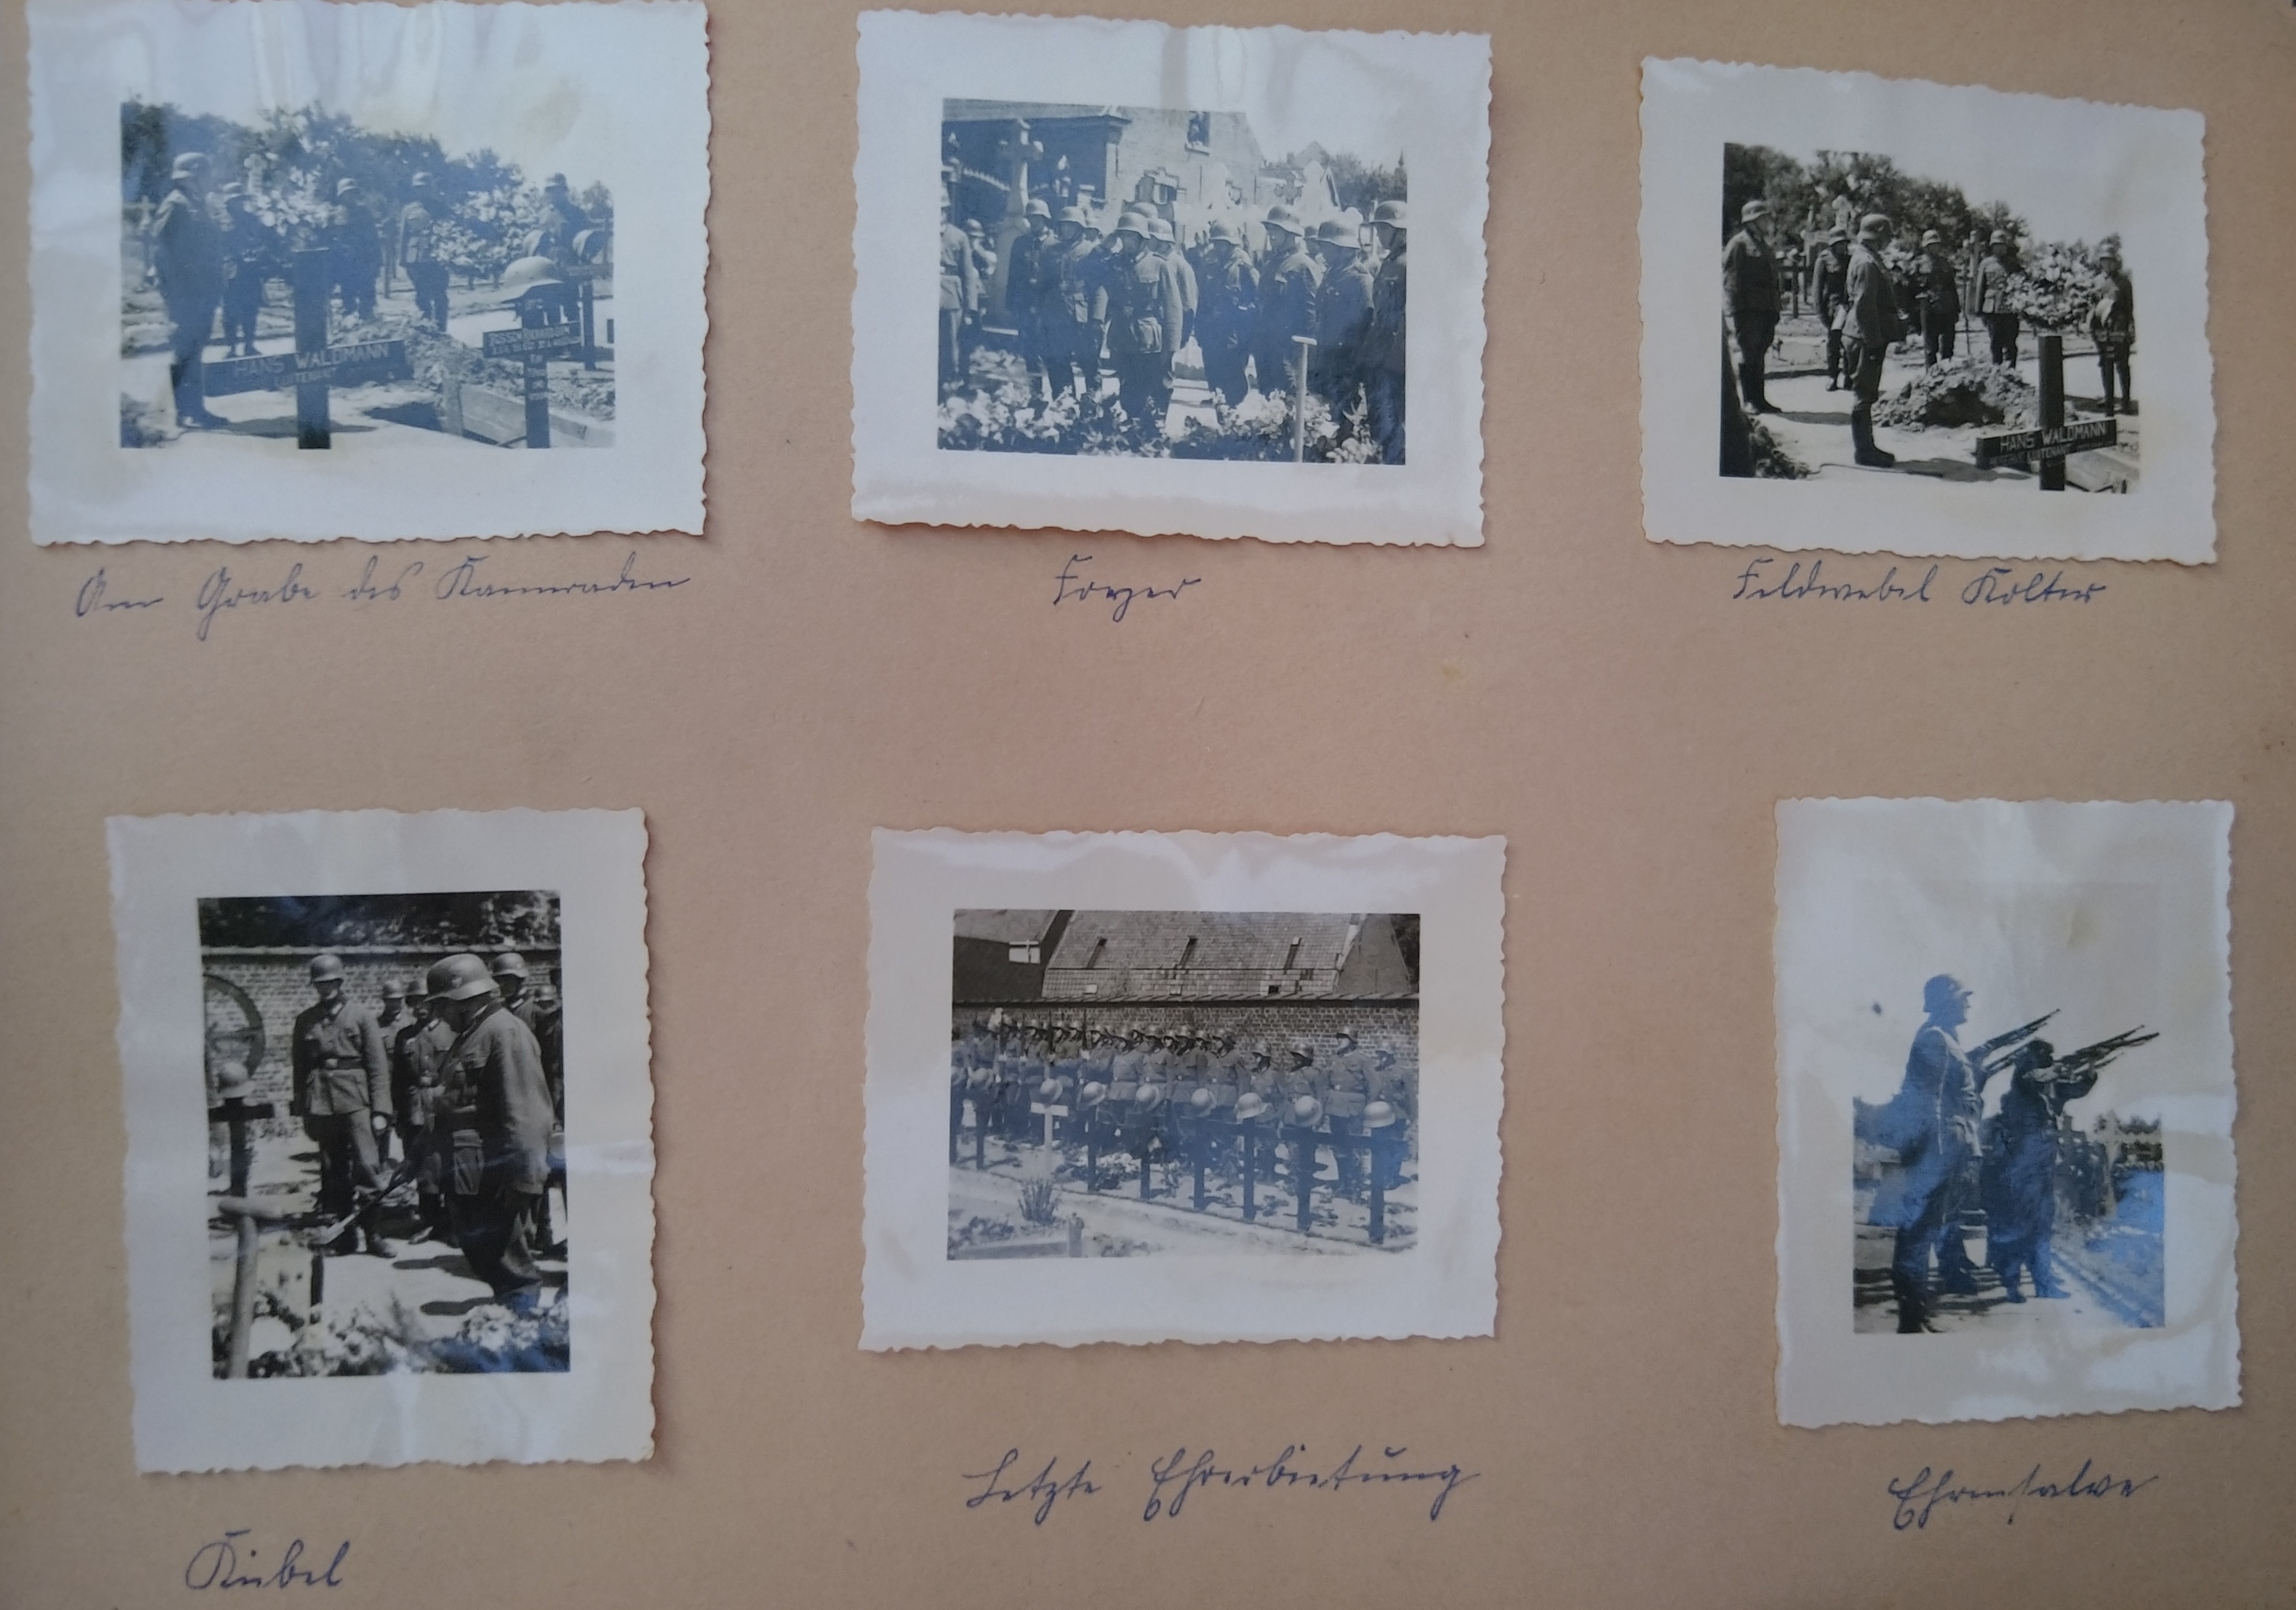 HANS WALDMANN
LEUTENANT
Am Grabe des Kameraden
Foyer
HANS WALDMANN
LEUTENANT
Feldwebel Kolter
Kübel
Letzte Ehrerbietung
Ehrensalve